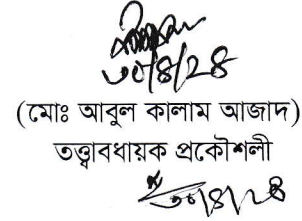 ৩০/৪/২৪
(মোঃ আবুল কালাম আজাদ)
তত্ত্বাবধায়ক প্রকৌশলী
৩০/৪/২৪